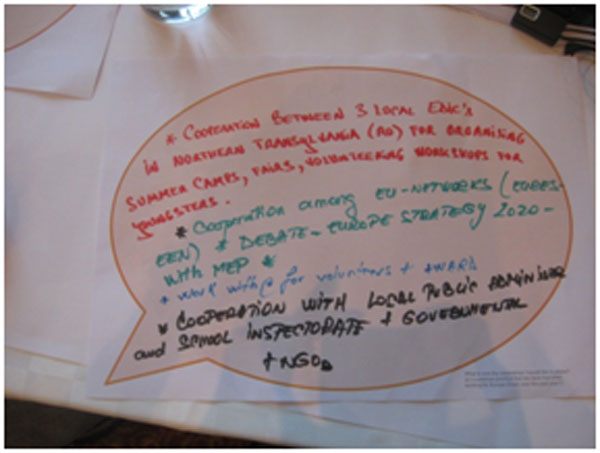 * COOPERATION BETWEEN 3 LOCAL EDIC'S
IN NORTHERN TRANSYLVANIA (RO) FOR ORGANISING
SUMMER CAMPS, FAIRS, VOLUNTEERING WORKSHOPS FOR
YOUNGSTERS.
* Cooperation among EU-NETWORKS (EURES-
EEN) * DEBATE - EUROPE STRATEGY 2020 -
with MEP *
* work with @ for volunteers + AWARD
* COOPERATION WITH LOCAL PUBLIC
and SCHOOL INSPECTORATE + GOVERNMENTAL
+ NGOs